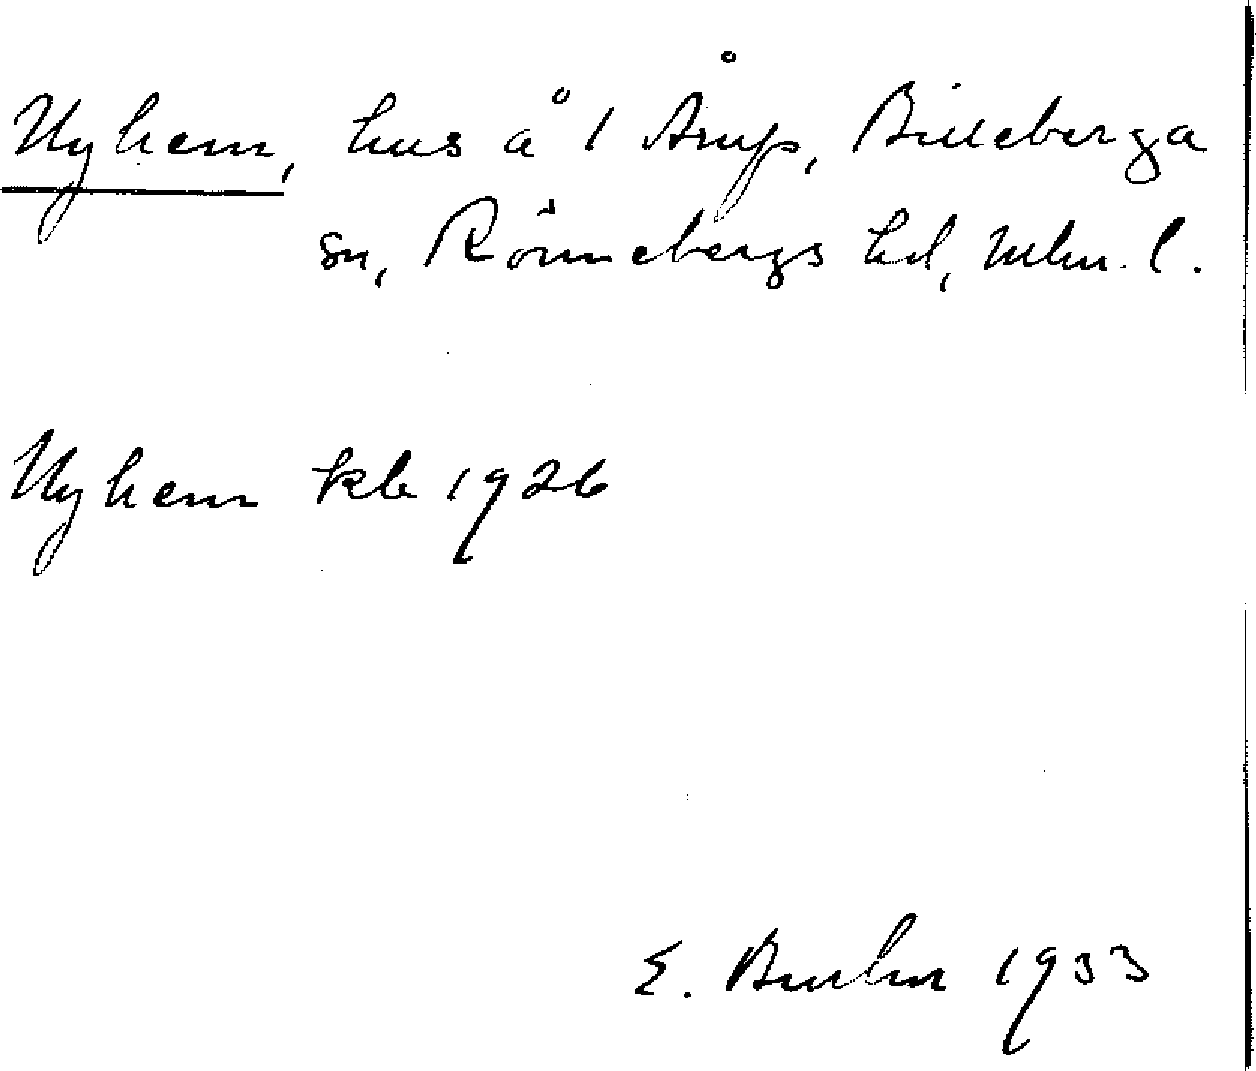 Nyhem, hus å 1 Årup, Billeberga
sn, Rönnebergs hd, Mlm. l.
Nyhem kb 1926
E. 1933